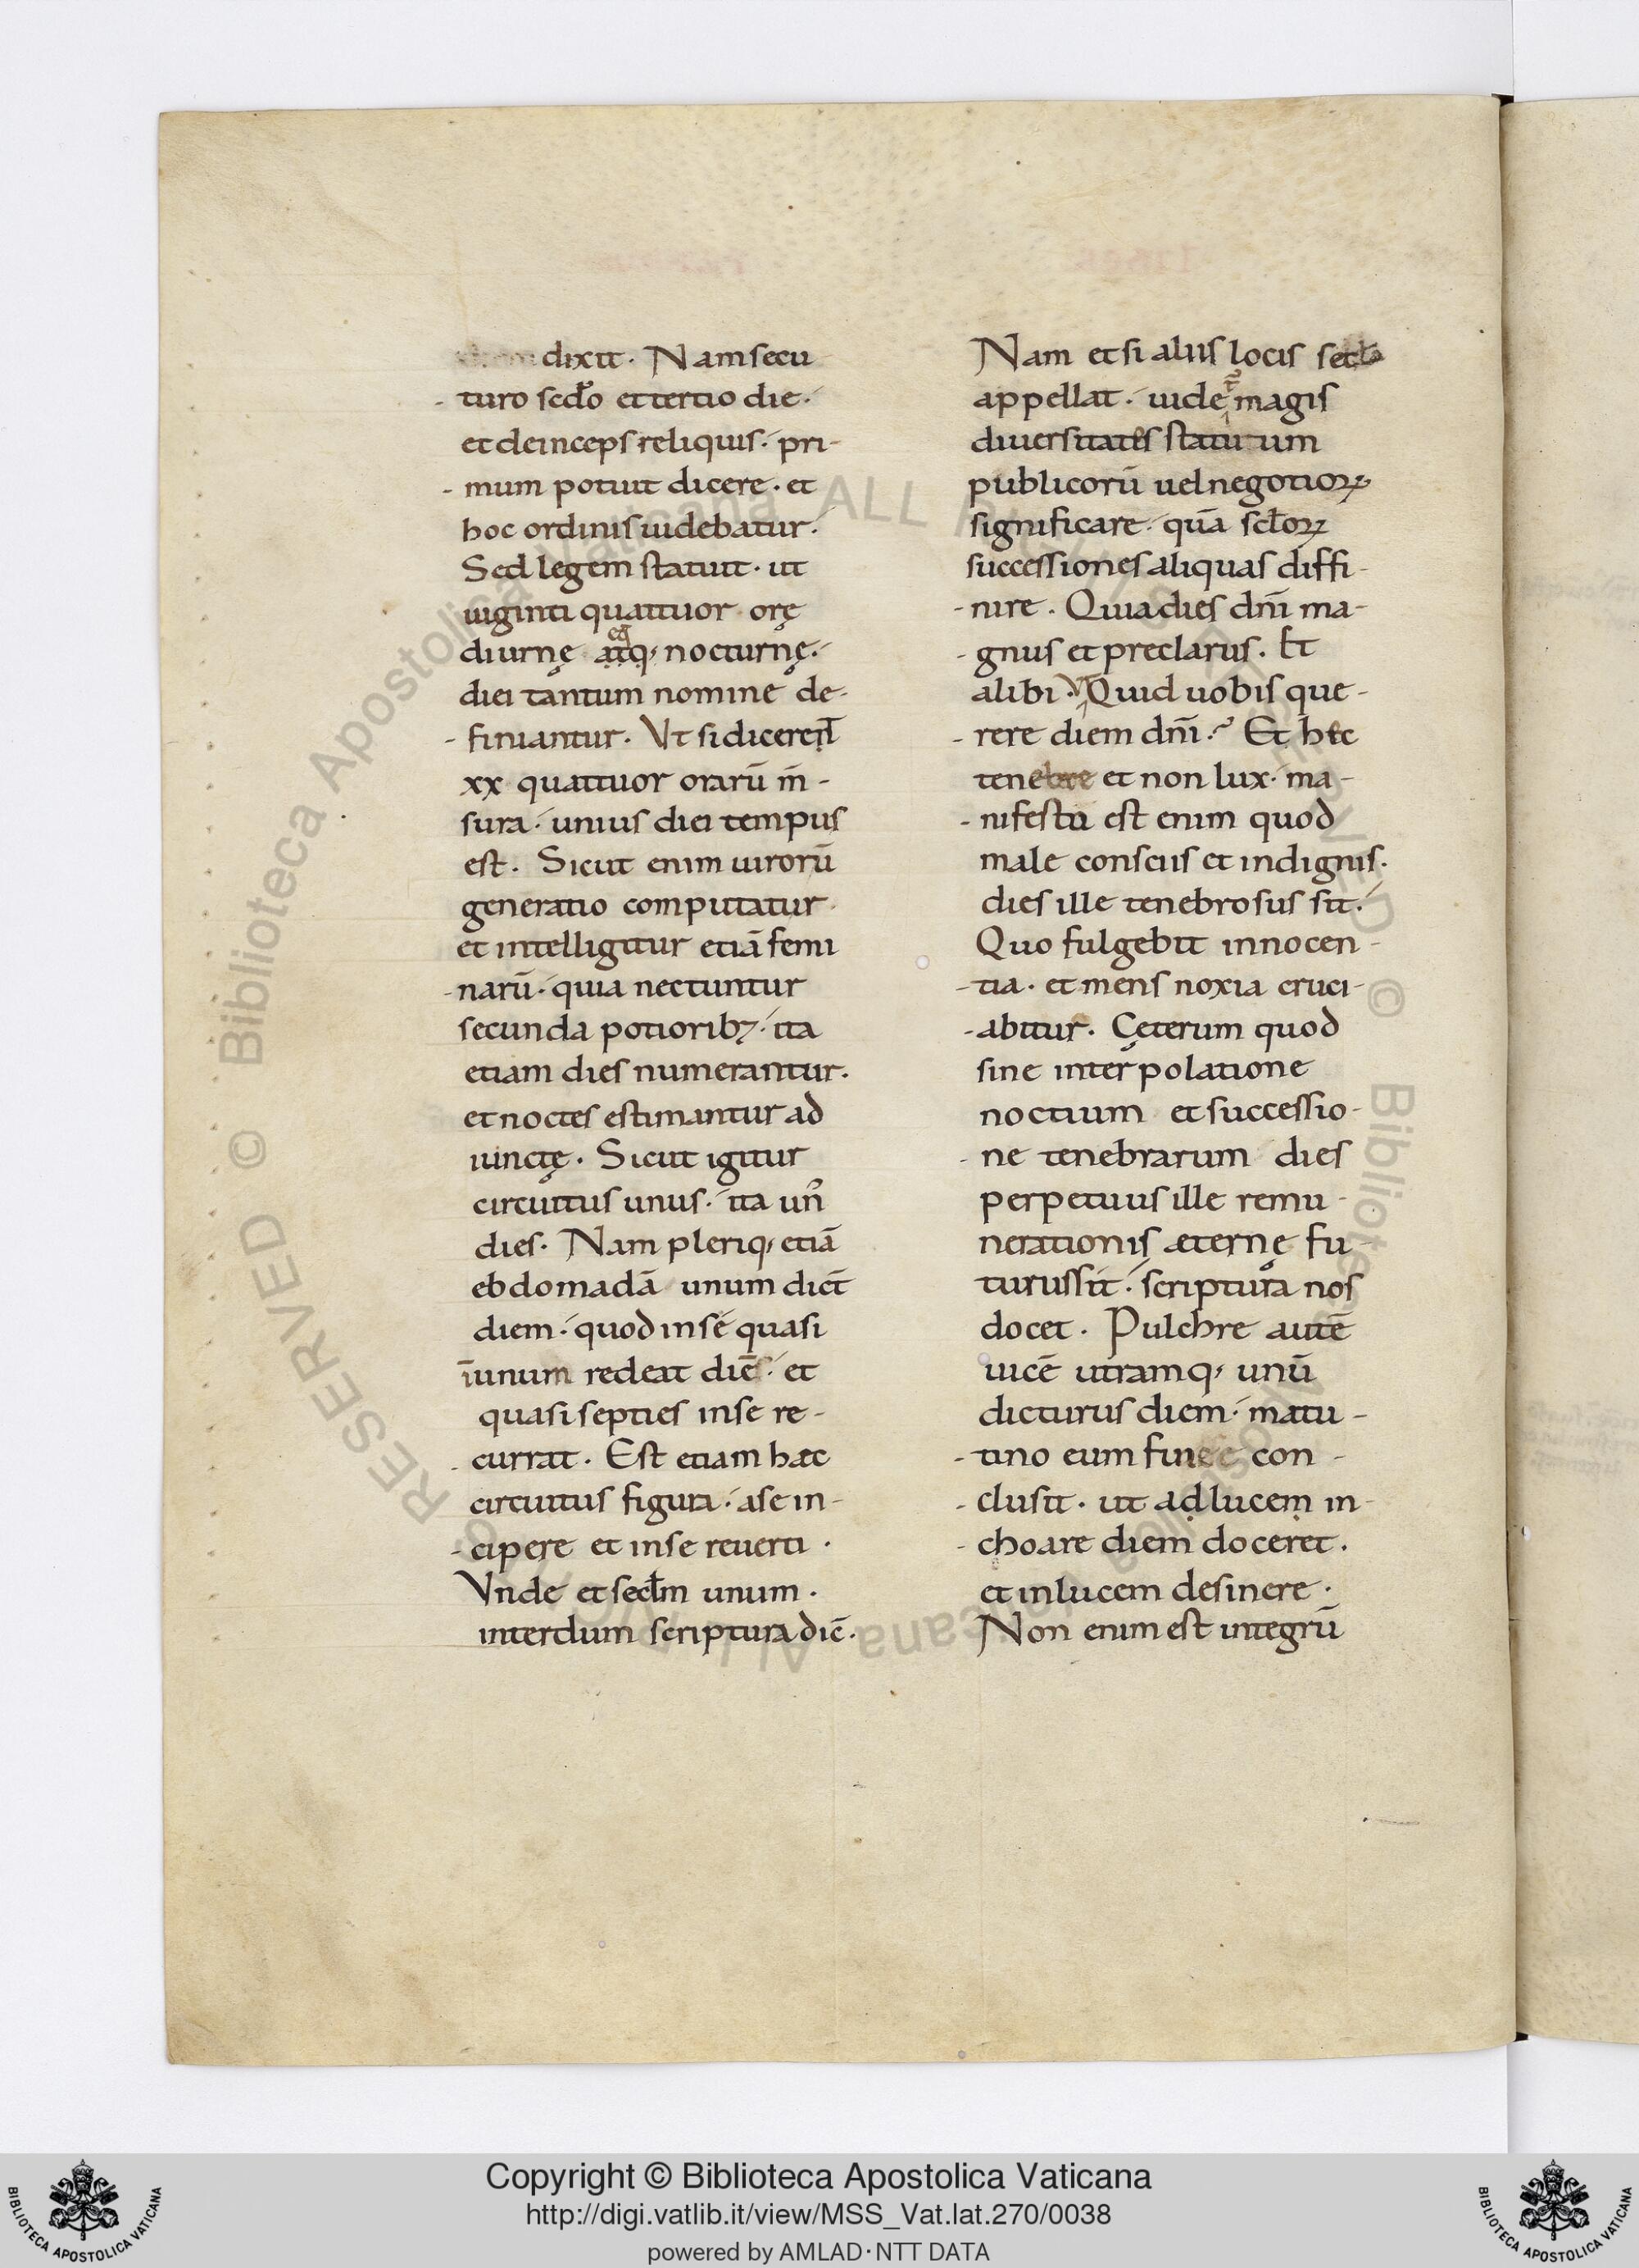 dixit. Nam secu
turo sc̄do et tertio die.
et deinceps reliquis. pri-
mum potuit dicere. et
hoc ordinis uidebatur.
Sed legem statuit. ut
uiginti quattuor orę
diurnę atq; nocturnę.
diei tantum nomine de-
finiantur. Vt si dicereñt
xx quattuor orarū m̄-
sura. unius diei tempus
est. Sicut enim uirorū
generatio computatur
et intelligitur etiā femi
narū. quia nectuntur
secunda potiorib; ita
etiam dies numerantur.
et noctes estimantur ad
iuinctę. Sicut igitur
circuitus unus. ita un᷒
dies. Nam pleriq; etiā
ebdomadā unum dic̄t
diem. quod in se quasi
īunum redeat diē. et
quasi septies in se re-
currat. Est etiam hæc
circuitus figura. a se in-
cipere et in se reuerti.
Vnde et secl̄m unum.
interdum scriptura diē.
Nam et si aliis locis secl̄a
appellat. uidet᷑ magis
diuersitates statuum
publicorū uel negotioꝝ
significare. quā scl̄oꝝ
successiones aliquas diffi-
nire. Quia dies dn̄i ma-
gnus et preclarus. Et
alibi. Vt Quid uobis que-
rere diem dn̄i.? Et hec
tenebre et non lux. ma-
nifestū est enim quod
male consciis et indignis.
dies ille tenebrosus sit.
Quo fulgebit innocen-
tia. et mens noxia cruci-
abitur. Cęterum quod
sine interpolatione
noctium et successio-
ne tenebrarum dies
perpetuus ille remu-
nerationis æternę fu
turus sit. scriptura nos
docet. Pulchre autē
uicē utramq; unū
dicturus diem. matu-
tino eum fine con-
clusit. ut ad lucem in-
choare diem doceret.
et in lucem desinere.
Non enim est integrū
© Biblioteca Apostolica Vaticana ALL RIGHTS RESERVED © Biblioteca Apostolica Vaticana ALL RIGHTS RESERVED
Copyright © Biblioteca Apostolica Vaticana
http://digi.vatlib.it/view/MSS_Vat.lat.270/0038
powered by AMLAD·NTT DATA
BIBLIOTECA APOSTOLICA VATICANA
BIBLIOTECA APOSTOLICA VATICANA